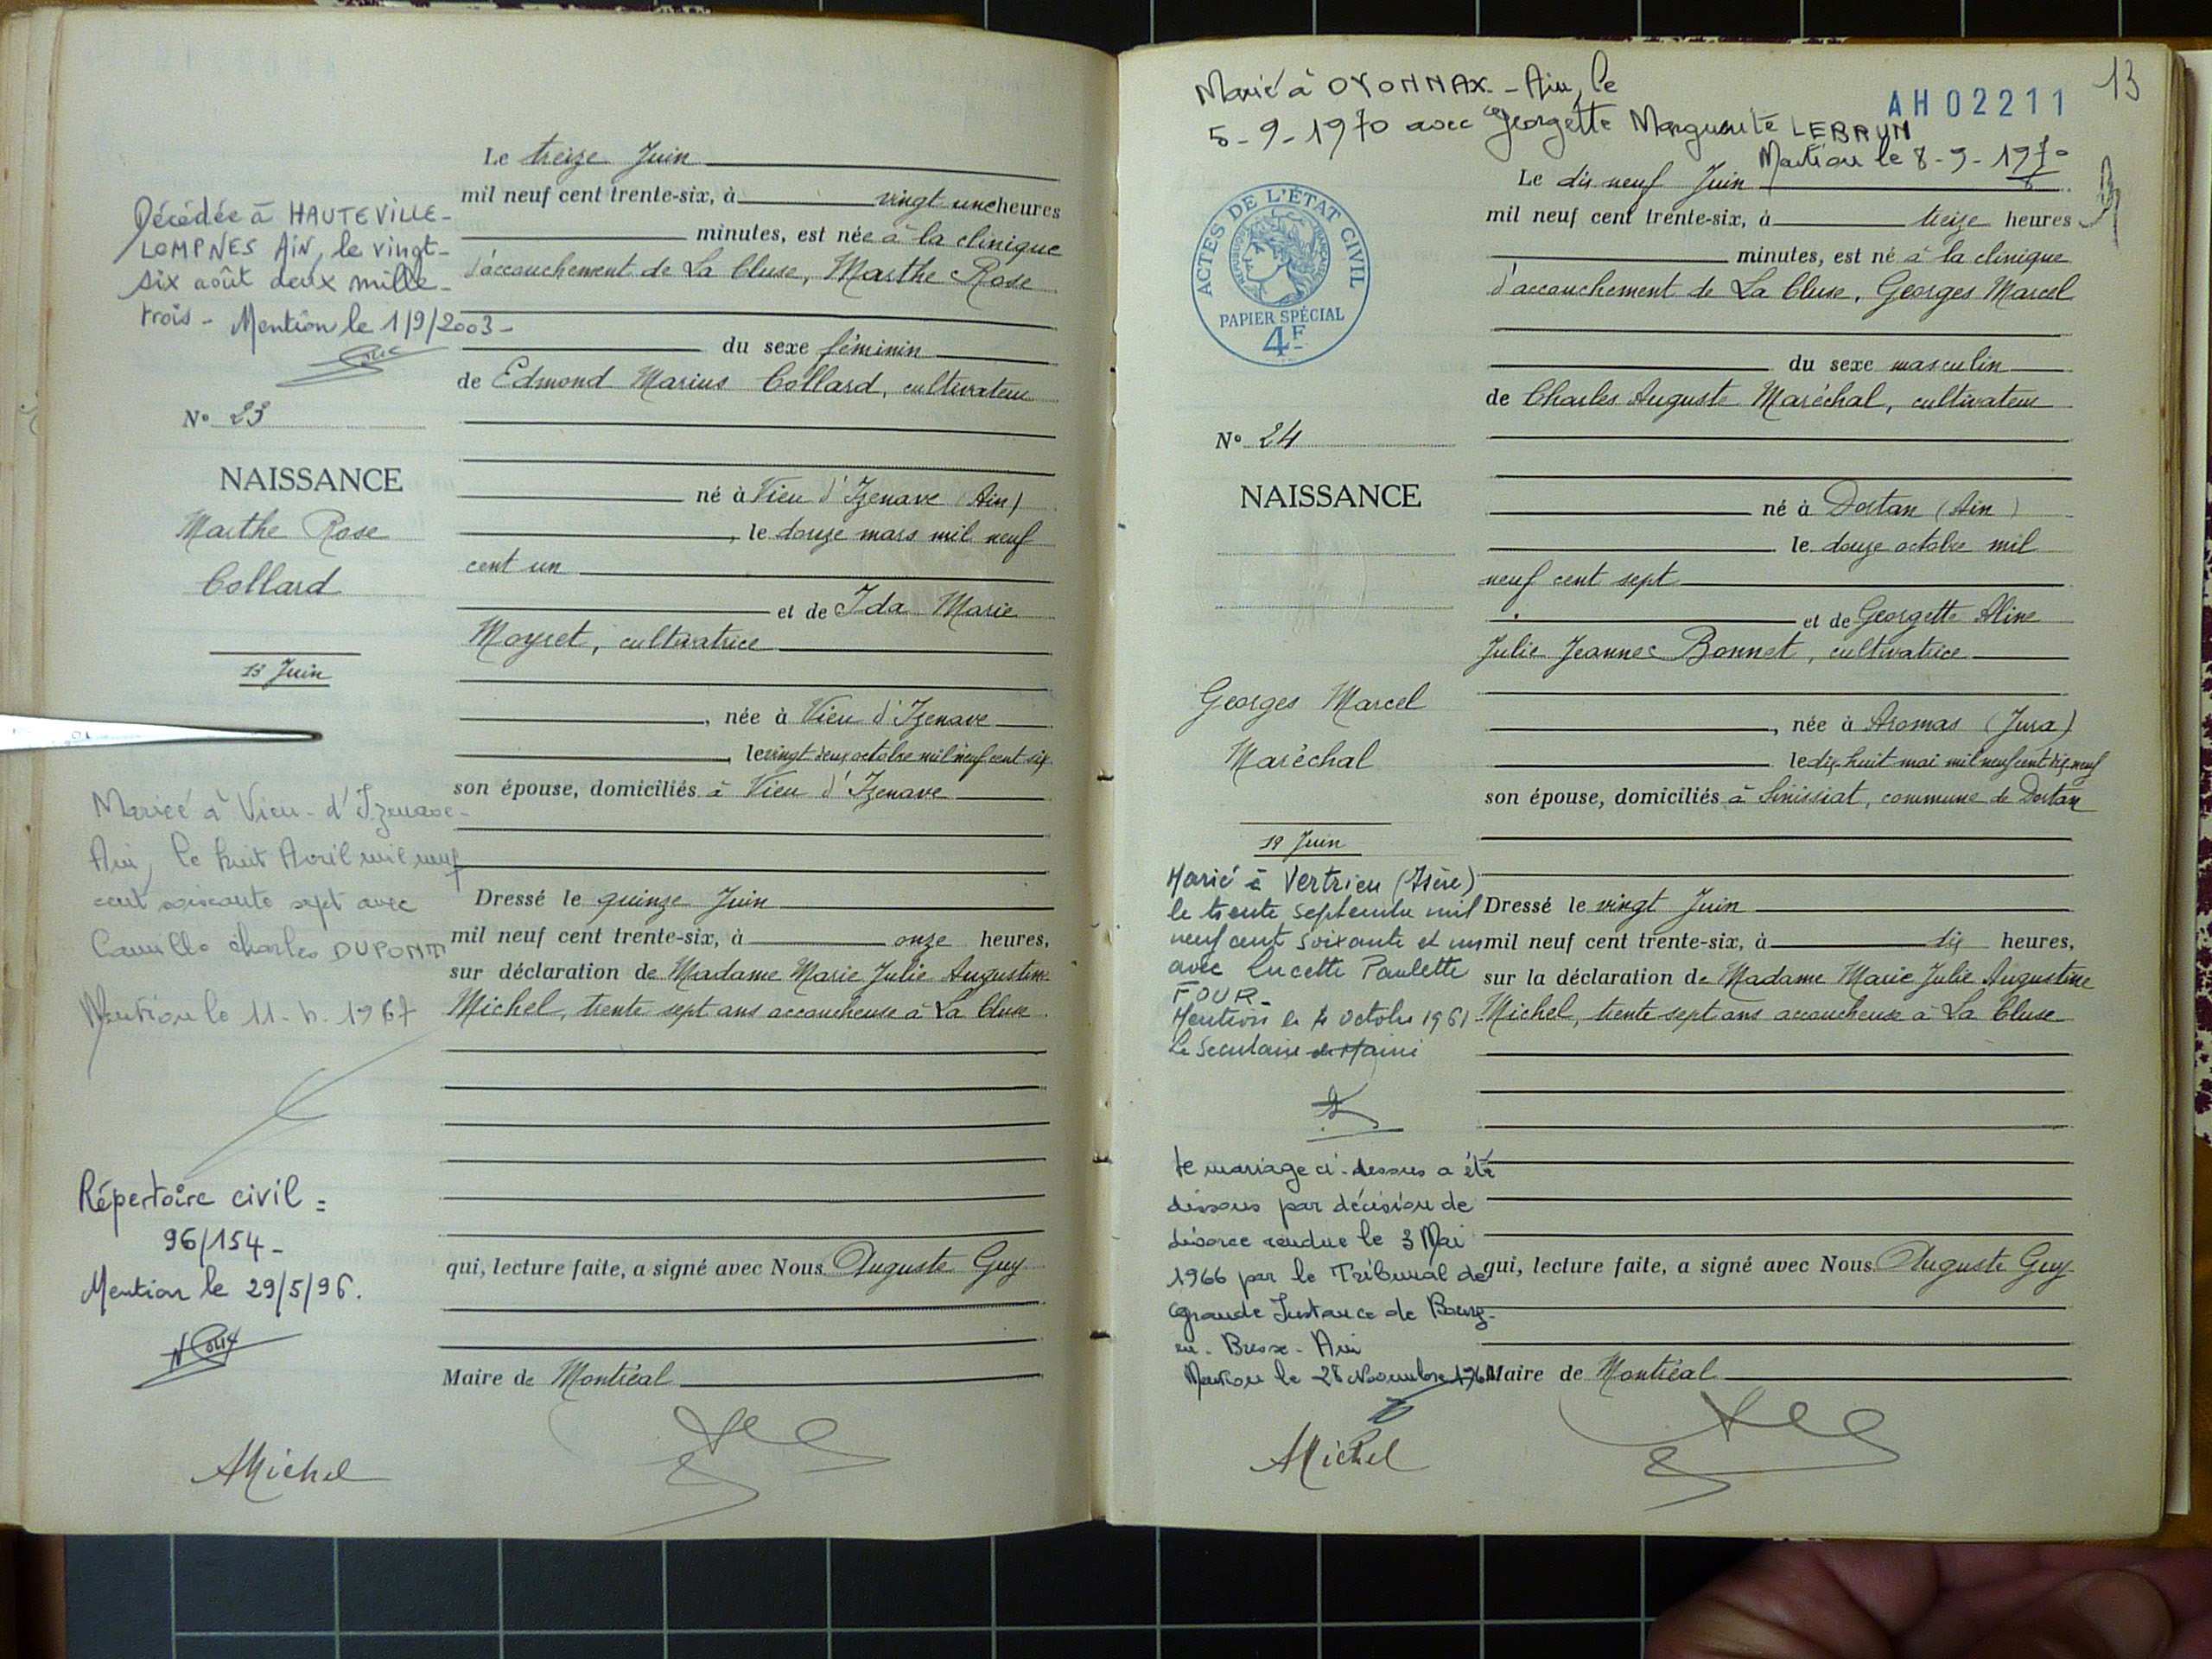 Le treize Juin
mil neuf cent trente-six, à vingt une heures
minutes, est née à la clinique
d'accouchement de La Cluse, Marthe Rose
du sexe féminin
de Edmond Marius Collard, cultivateur
né à Vieu d'Izenave (Ain)
, le douze mars mil neuf
cent un
et de Ida Marie
Moyret, cultivatrice
, née à Vieu d'Izenave
, le vingt deux octobre mil neuf cent six
son épouse, domiciliés à Vieu d'Izenave
Dressé le quinze Juin
mil neuf cent trente-six, à onze heures,
sur déclaration de Madame Marie Julie Augustine
Michel, trente sept ans accoucheuse à La Cluse
qui, lecture faite, a signé avec Nous Auguste Guy
Maire de Montréal
Décédée à HAUTEVILLE-
LOMPNES AIN, le vingt-
six août deux mille-
trois - Mention le 1/9/2003 -
N° 23
NAISSANCE
Marthe Rose
Collard
13 Juin
Mariée à Vieu-d'Izenave-
Ain, le huit Avril mil neuf
cent soixante sept avec
Camille Charles DUPONT
Mention le 11-4-1967
Répertoire civil =
96/154-
Mention le 29/5/96.
AMichel
13
AH02211
Marié à OYONNAX - Ain, le
5-9-1970 avec Georgette Marguerite LEBRUN
Mention le 8-9-1970
Le dix neuf Juin
mil neuf cent trente-six, à treize heures
minutes, est né à la clinique
d'accouchement de La Cluse, Georges Marcel
du sexe masculin
de Charles Auguste Maréchal, cultivateur
né à Dortan (Ain)
le douze octobre mil
neuf cent sept
et de Georgette Aline
Julie Jeanne Bonnet, cultivatrice
, née à Aromas (Jura)
le dix huit mai mil neuf cent dix neuf
son épouse, domiciliés à Sinissiat, commune de Dortan
Dressé le vingt Juin
mil neuf cent trente-six, à dix heures,
sur la déclaration de Madame Marie Julie Augustine
Michel, trente sept ans accoucheuse à La Cluse
qui, lecture faite, a signé avec Nous Auguste Guy
Maire de Montréal
ACTES DE L'ÉTAT CIVIL
RÉPUBLIQUE FRANÇAISE
PAPIER SPÉCIAL
4F
N° 24
NAISSANCE
Georges Marcel
Maréchal
19 Juin
Marié à Vertrieu (Isère)
le trente septembre mil
neuf cent soixante et un
avec Lucette Paulette
FOUR-
Mention le 4 octobre 1961
Le Secrétaire de Mairie
Le mariage ci-dessus a été
dissous par décision de
divorce rendue le 3 Mai
1966 par le Tribunal de
Grande Instance de Bourg-
en-Bresse-Ain
Mention le 28 Novembre
AMichel